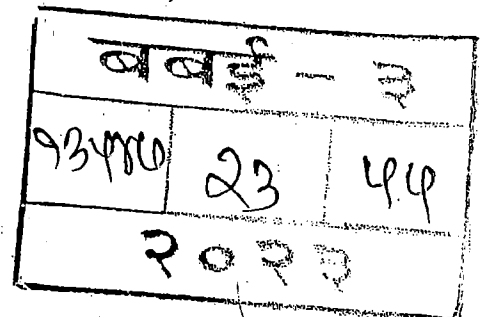 बबई - ३
१३५४७ २३ ५५
२०२३